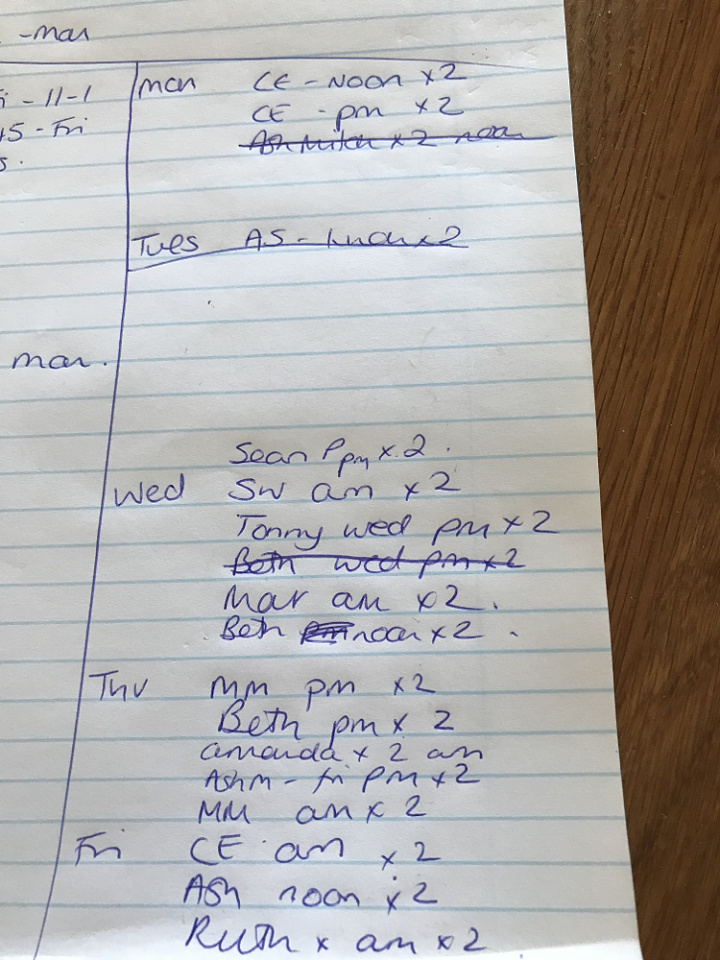 - mar
i - 11-1
15 - Fri
s.
mon CE - Noon x2
CE - pm x2
x2 noon
Tues AS - x2
mar.
Sean P pm x 2.
Wed SW am x2
Tommy wed pm x2
Beth wed pm x2
Mar am x2.
Beth noon x2.
Thu MM pm x2
Beth pm x 2
amanda x 2 am
Ashm - fri pm x2
MM am x 2
Fri CE am x2
Ash noon x2
Ruth x am x2